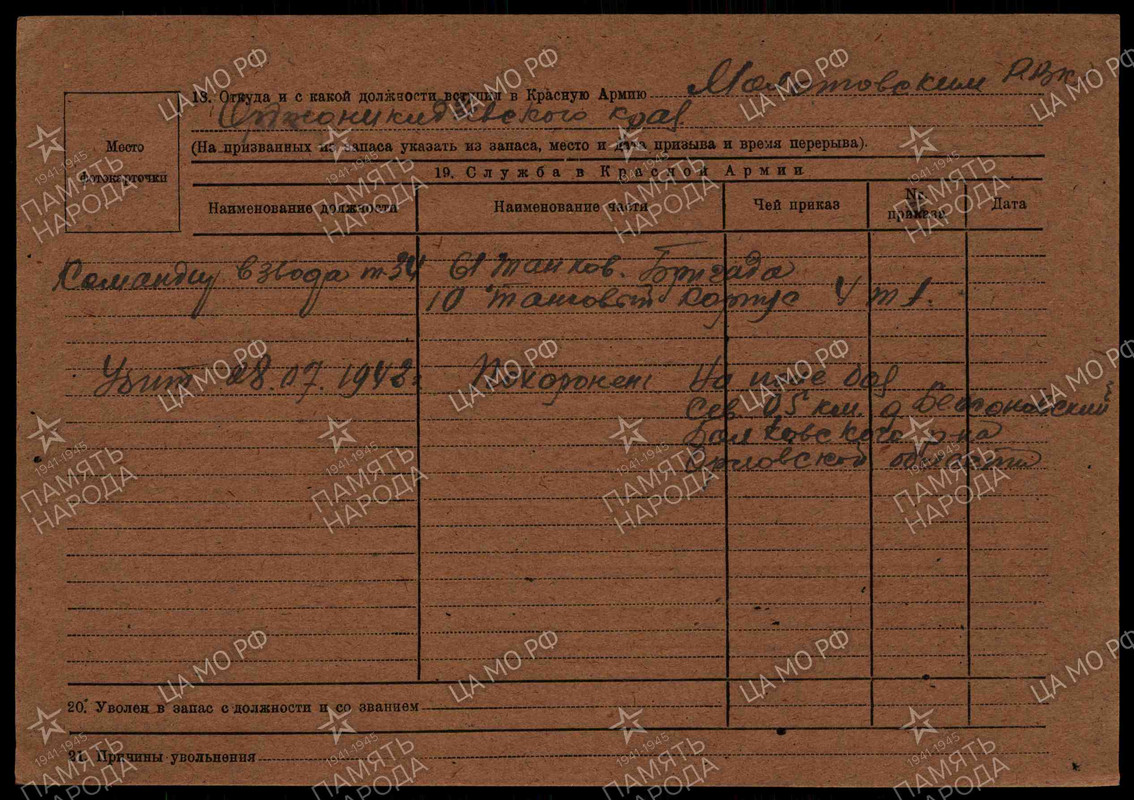 18. Откуда и с какой должности вступил в Красную Армию Молотовским РВК
Орджоникидзевского края
(На призванных из запаса указать из запаса, место и дата призыва и время перерыва).
Место
фотокарточки
19. Служба в Красной Армии
Наименование должности Наименование части Чей приказ № приказа Дата
Командир взвода т-34 61 танков. Бригада
10 танковый корпус 4 т А.
Убит 28.07.1943 г Похоронен На поле боя
Сев 0,5 км. д
Болховского р-на
Орловской области
20. Уволен в запас с должности и со званием
21. Причины увольнения
ЦА МО РФ
1941-1945
ПАМЯТЬ
НАРОДА